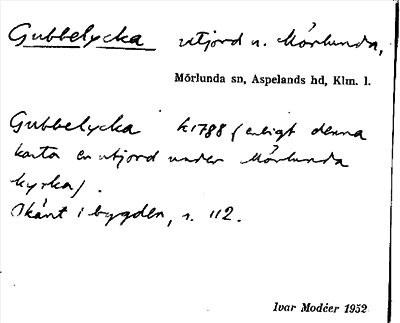 Gubbelycka utjord u. Mörlunda,
Mörlunda sn, Aspelands hd, Klm. l.
Gubbelycka k1788 (enligt denna
karta en utjord under Mörlunda
kyrka).
Okänt i bygden, s. 112.
Ivar Modéer 1952